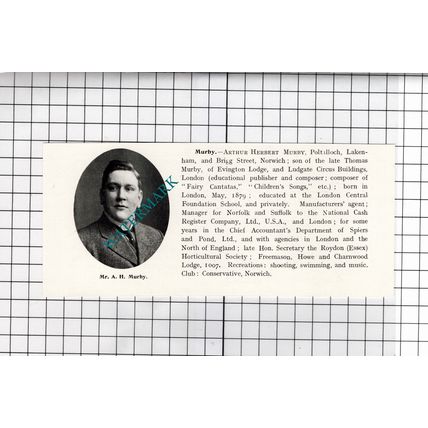 Murby.—ARTHUR HERBERT MURBY, Poltalloch, Laken-
ham, and Brigg Street, Norwich ; son of the late Thomas
Murby, of Evington Lodge, and Ludgate Circus Buildings,
London (educational publisher and composer ; composer of
"Fairy Cantatas," "Children's Songs," etc.) ; born in
London, May, 1879 ; educated at the London Central
Foundation School, and privately. Manufacturers' agent ;
Manager for Norfolk and Suffolk to the National Cash
Register Company, Ltd., U.S.A., and London ; for some
years in the Chief Accountant's Department of Spiers
and Pond, Ltd., and with agencies in London and the
North of England ; late Hon. Secretary the Roydon (Essex)
Horticultural Society ; Freemason, Howe and Charnwood
Lodge, 1007. Recreations : shooting, swimming, and music.
Club : Conservative, Norwich.
Mr. A. H. Murby.
WATERMARK